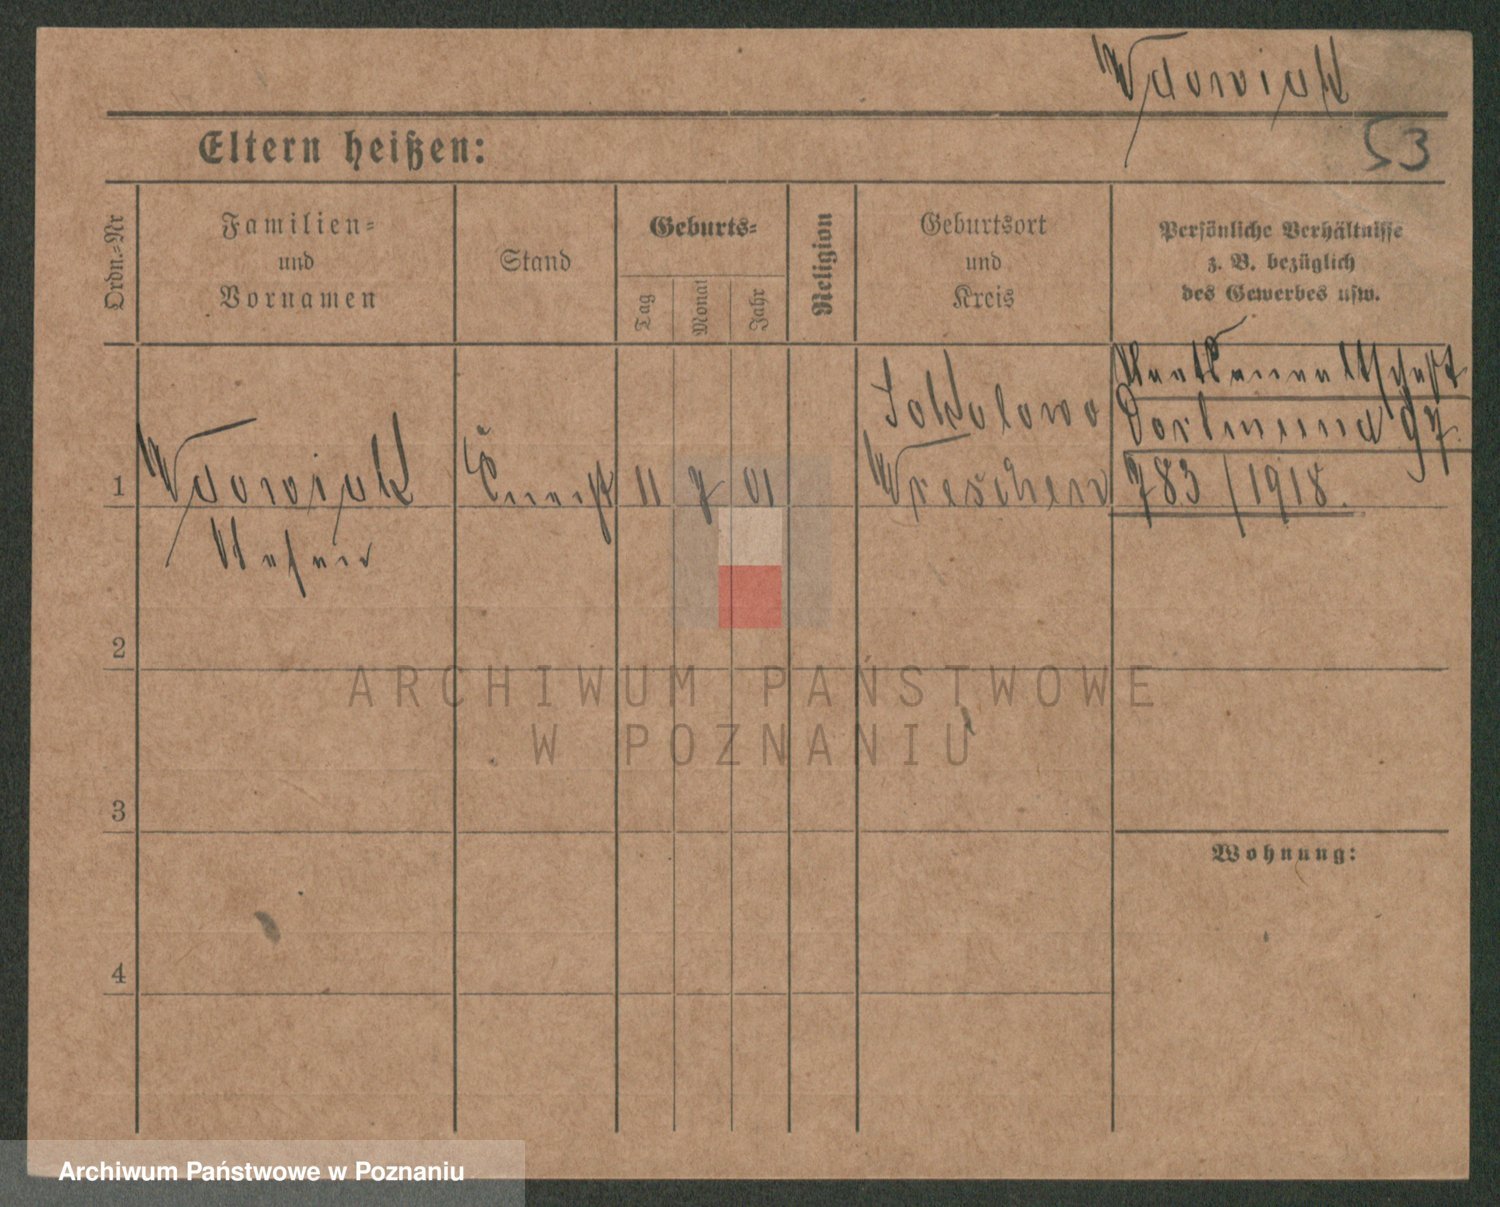 Wdowiak
53
Eltern heißen:
Ordn.-Nr
Familien-
und
Vornamen
Stand
Geburts-
Tag
Monat
Jahr
Religion
Geburtsort
und
Kreis
Persönliche Verhältnisse
z. B. bezüglich
des Gewerbes usw.
1
Wdowiak
11 7 01
Sokolowo
Wreschen
Staatsanwaltschaft
Dortmund
783/1918.
2
3
4
Wohnung:
ARCHIWUM PAŃSTWOWE
W POZNANIU
Archiwum Państwowe w Poznaniu